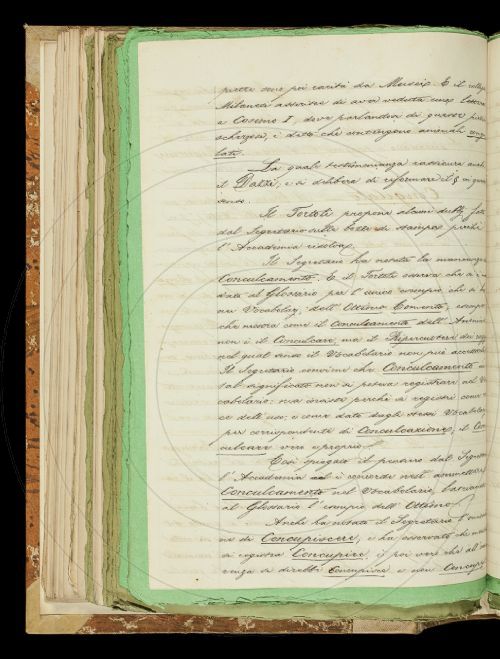 pietre sono poi rarità da Museo. E il collega
Milanesi asserisce di aver veduta una lettera
a Cosimo I, dove parlandosi di queste pietre
è detto che contengono animali conge
lati.
La quale testimonianza rassicura anche
il Dazzi, e si delibera di riformare il § in questo
senso.
Il Tortoli propone alcuni dubbj fatti
dal Segretario sulle bozze di stampa perchè
l'Accademia risolva.
Il Segretario ha notata la mancanza
Conculcamento. E il Tortoli osserva che
dato al Glossario per l'unico esempio che si ha
nei Vocabolarj, dell'Ottimo Comento, esempio
che mostra come il Conculcamento dell'
non è il Conculcare, ma il Ripercuotere dei
nel qual senso il Vocabolario non può accettarlo.
Il Segretario conviene che Conculcamento in
tal significato non si possa registrare nel Vo
cabolario: ma insiste perchè si registri come vo
ce dell'uso, e come data dagli stessi Vocabolarj
per corrispondente di Conculcazione, il Con
culcare vero e proprio.
Così spiegato il pensiero dal Segretario
l'Accademia è concorde nell'ammettere
Conculcamento nel Vocabolario, lasciando
al Glossario l'esempio dell'Ottimo.
Anche ha notata il Segretario
za di Concupiscere, e ha osservato che
si registra Concupire, è poi vero che all'
renza si direbbe Concupisce e non Concupi